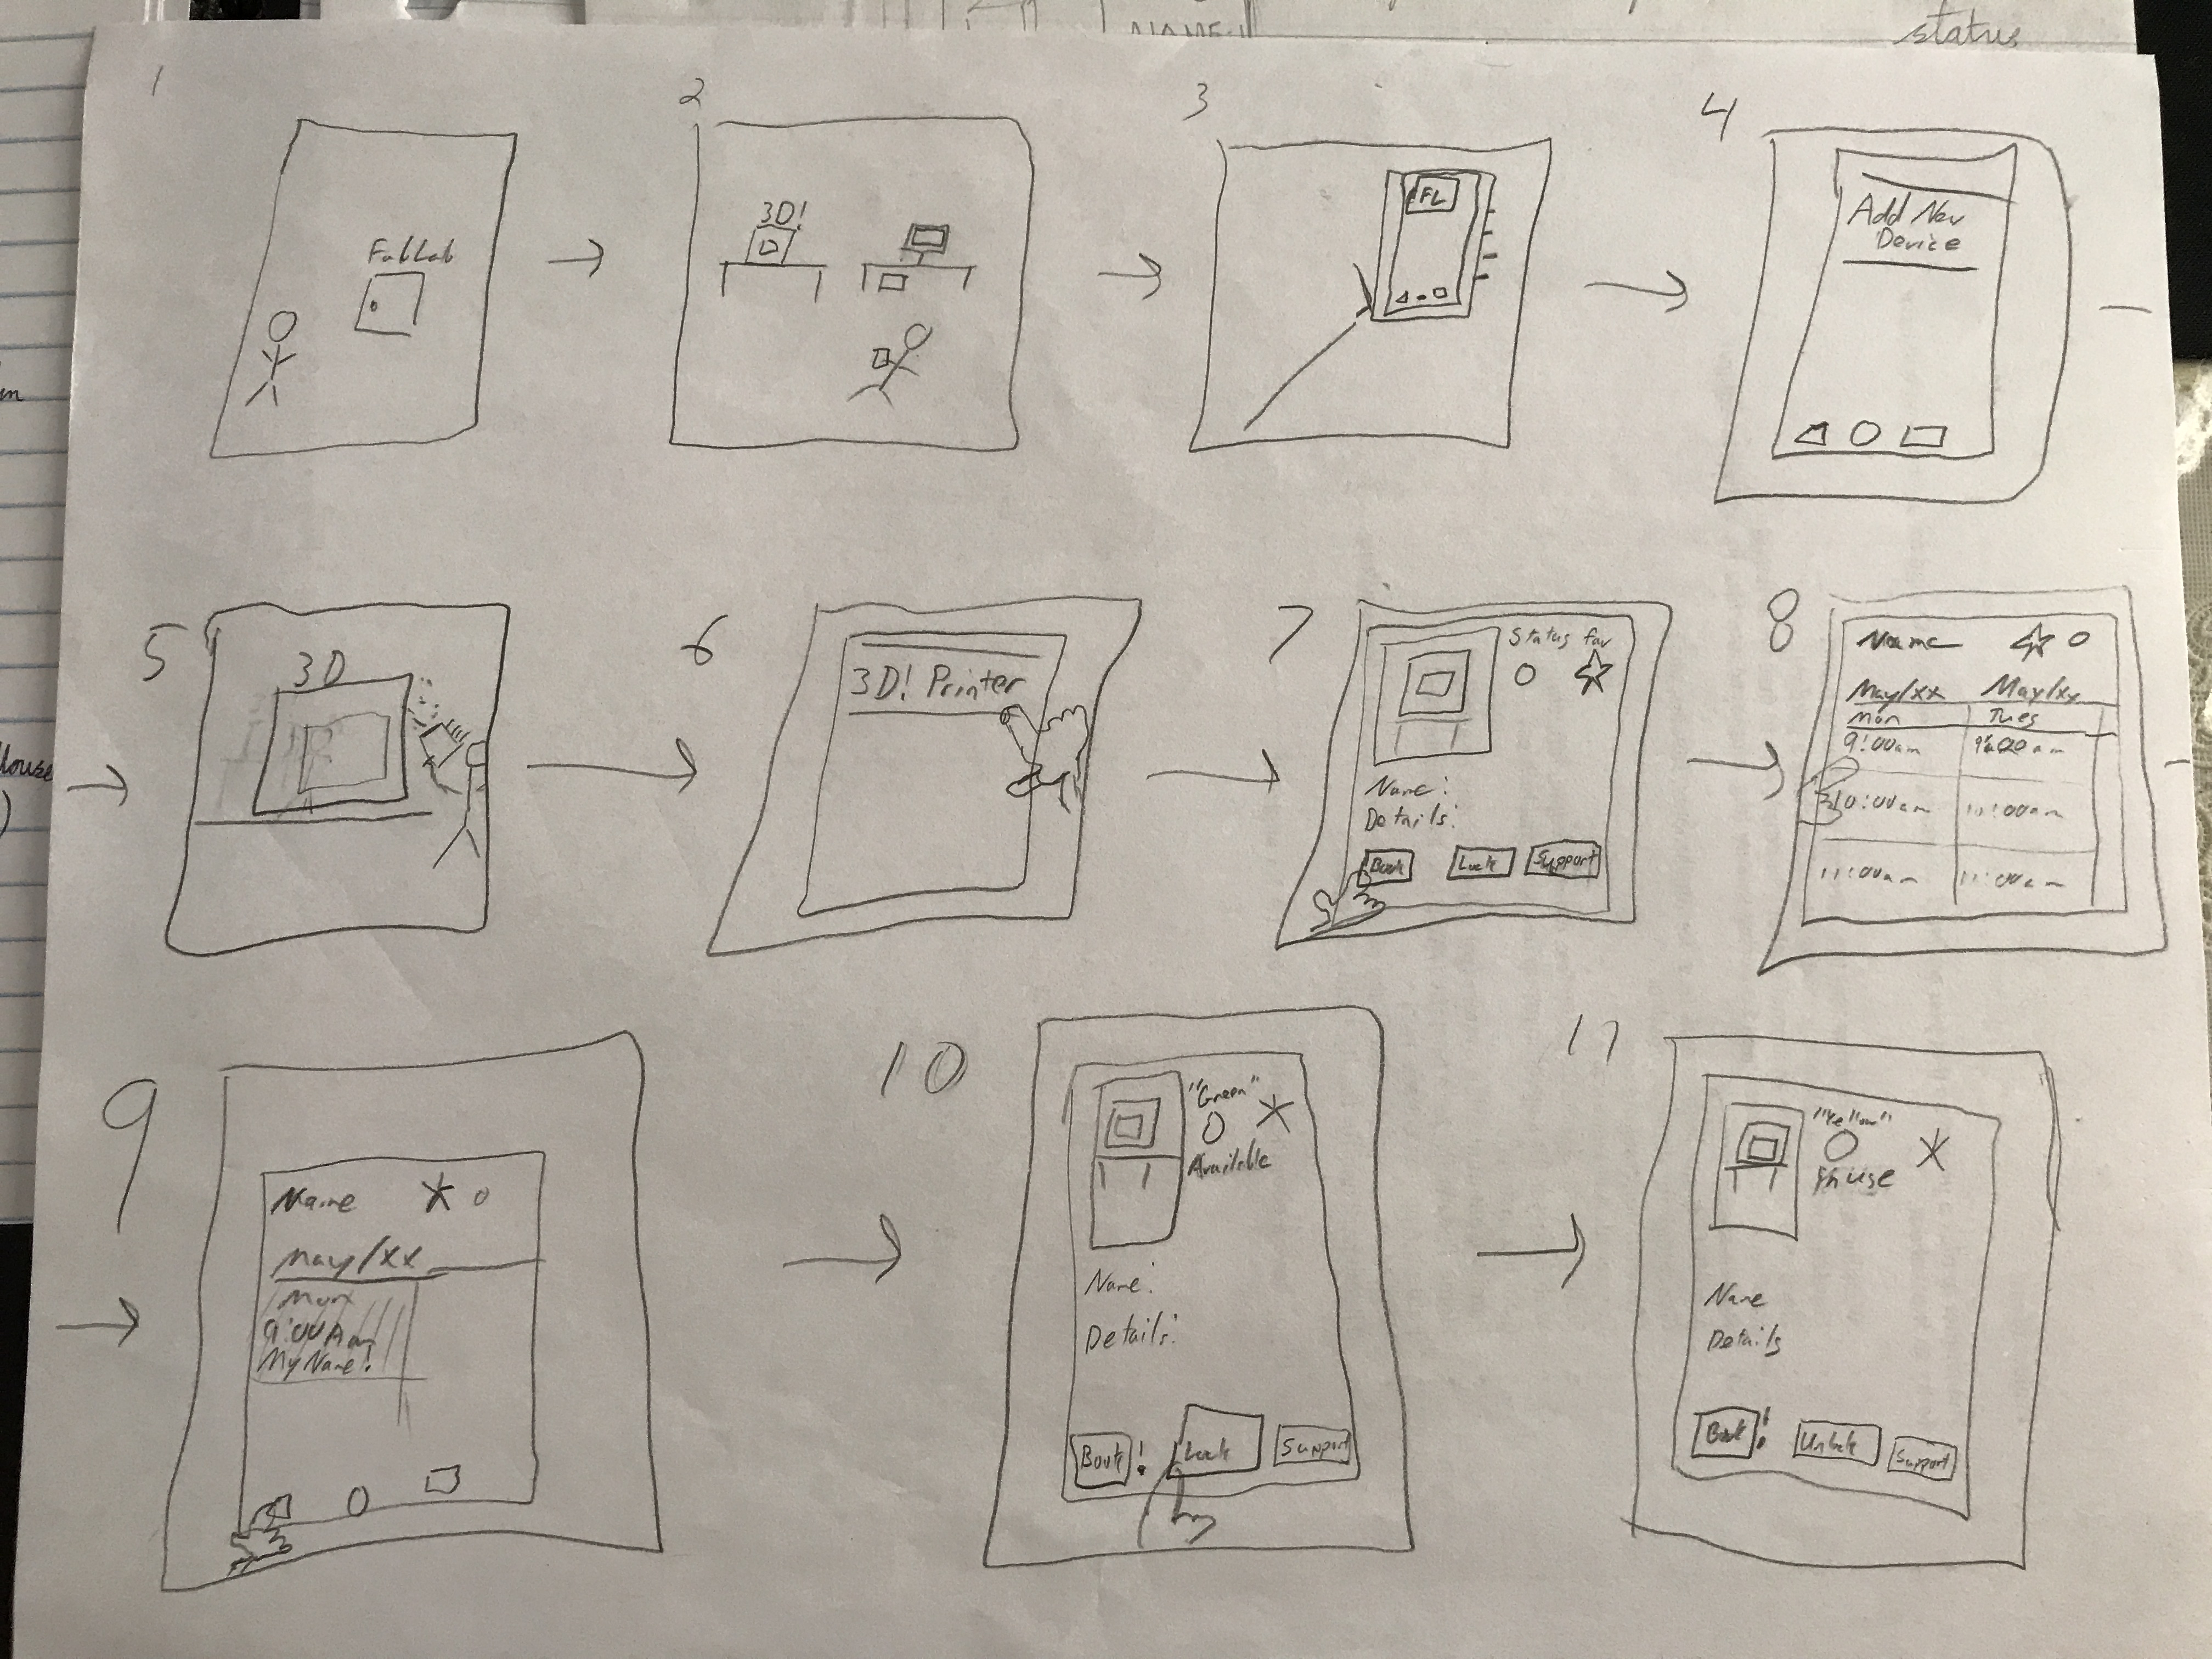 1
FabLab
2
3D!
3
FL
4
Add New
Device
5
3D
6
3D! Printer
7
Status for
Name:
Details:
Book
Lock
Support
8
Name
May/xx
May/xx
Mon
Tues
9:00am
10:00am
11:00am
11:00am
11:00am
9
Name
May/xx
Mon
9:00Am
My Name!
10
"Green"
Available
Name:
Details:
Book!
Lock
Support
11
"Yellow"
Name
Details
Book!
Unlock
Support
status